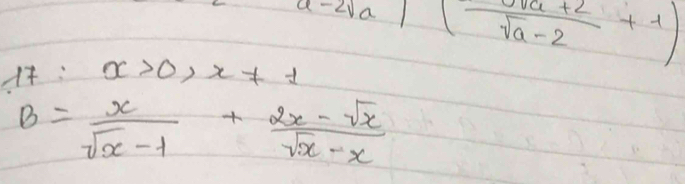 a-2√a) (... √a+2 / √a-2 + 1)
17: x>0, x≠1
B = x / √x-1 + 2x-√x / √x-x